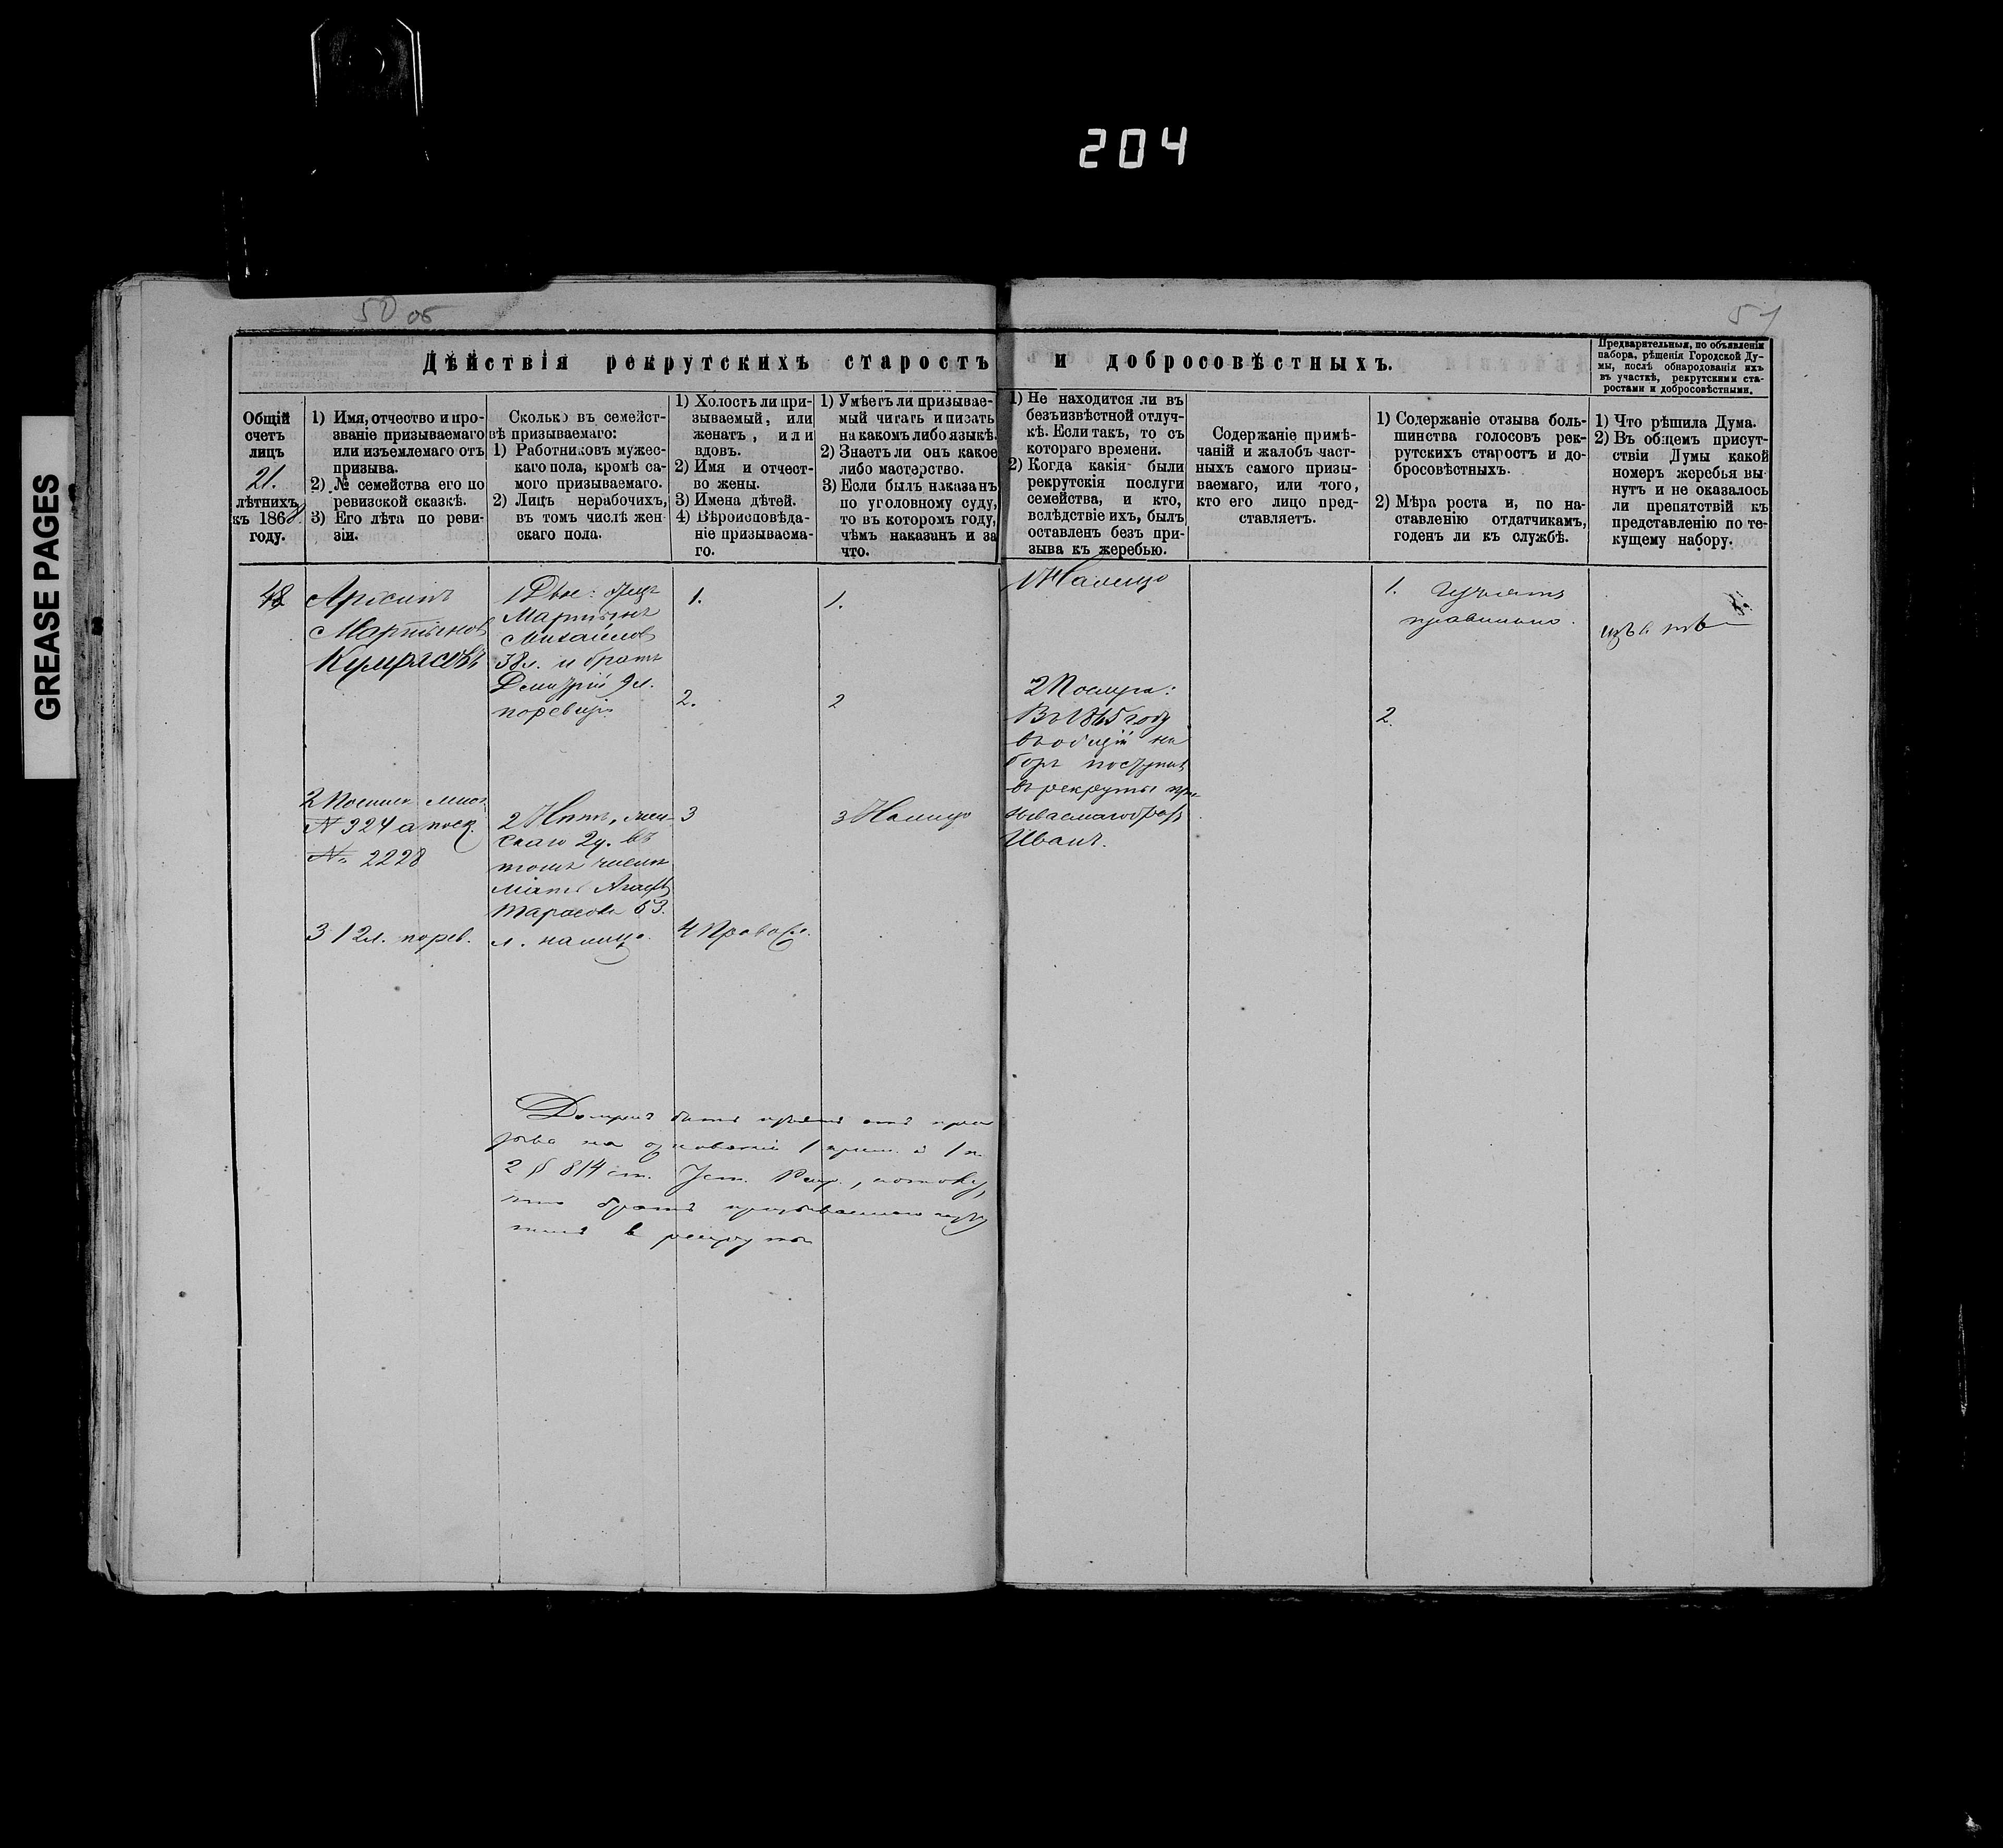 204
GREASE PAGES
50 об
51
Дѣйствія рекрутскихъ старостъ и добросовѣстныхъ.
Предварительныя, по объявленіи
набора, рѣшенія Городской Ду-
мы, послѣ обнародованія ихъ
въ участкѣ, рекрутскими ста-
ростами и добросовѣстными.
Общій
счетъ
лицъ
21.
лѣтнихъ
къ 1868.
году.
1) Имя, отчество и про-
званіе призываемаго
или изъемлемаго отъ
призыва.
2) № семейства его по
ревизской сказкѣ.
3) Его лѣта по реви-
зіи.
Сколько въ семейст-
вѣ призываемаго:
1) Работниковъ мужес-
каго пола, кромѣ са-
мого призываемаго.
2) Лицъ нерабочихъ,
въ томъ числѣ жен-
скаго пола.
1) Холостъ ли при-
зываемый, или
женатъ, или
вдовъ.
2) Имя и отчест-
во жены.
3) Имена дѣтей.
4) Вѣроисповѣда-
ніе призываема-
го.
1) Умѣетъ ли призывае-
мый читать и писать
на какомъ либо языкѣ.
2) Знаетъ ли онъ какое
либо мастерство.
3) Если былъ наказанъ
по уголовному суду,
то въ которомъ году,
чѣмъ наказанъ и за
что.
1) Не находится ли въ
безъизвѣстной отлуч-
кѣ. Если такъ, то съ
котораго времени.
2) Когда какія были
рекрутскія послуги
семейства, и кто,
вслѣдствіе ихъ, былъ
оставленъ безъ при-
зыва къ жеребью.
Содержаніе примѣ-
чаній и жалобъ част-
ныхъ самого призы-
ваемаго, или того,
кто его лицо пред-
ставляетъ.
1) Содержаніе отзыва боль-
шинства голосовъ рек-
рутскихъ старостъ и до-
бросовѣстныхъ.
2) Мѣра роста и, по на-
ставленію отдатчикамъ,
годенъ ли къ службѣ.
1) Что рѣшила Дума.
2) Въ общемъ присут-
ствіи Думы какой
номеръ жеребья вы-
нутъ и не оказалось
ли препятствій къ
представленію по те-
кущему набору.
48
Мартыновъ
Кумрясовъ
2
№ 324 а
№ 2228
3 12 л. по рев.
1 Двое: отецъ
Мартынъ
Михайловъ
38 л. и братъ
Дмитрій 9 л.
по ревизіи
2 Нѣтъ, жен-
скаго 2 д. въ
томъ числѣ
мать
Тарасова 63.
л. налицо.
1.
2.
3
4 Правосл.
1.
2
3
1 Налицо
2 Послуги:
Въ 1865 году
въ общій на
боръ поступилъ
въ рекруты при
зываемаго братъ
Иванъ.
1. Изъять
правильно.
2.
Долженъ быть изъятъ отъ при
зыва на основаніи 1 прим. и 1 п
2 § 814 ст. Уст. Рекр., потому,
что братъ призываемаго
въ рекруты